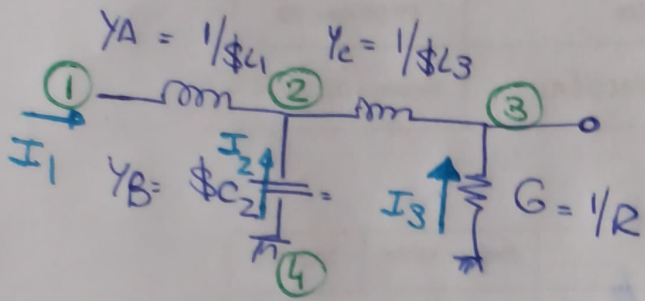 YA = 1/$L1 Yc = 1/$L3
1 2 3
I1 I2
YB= $C2 = I3 G = 1/R
4